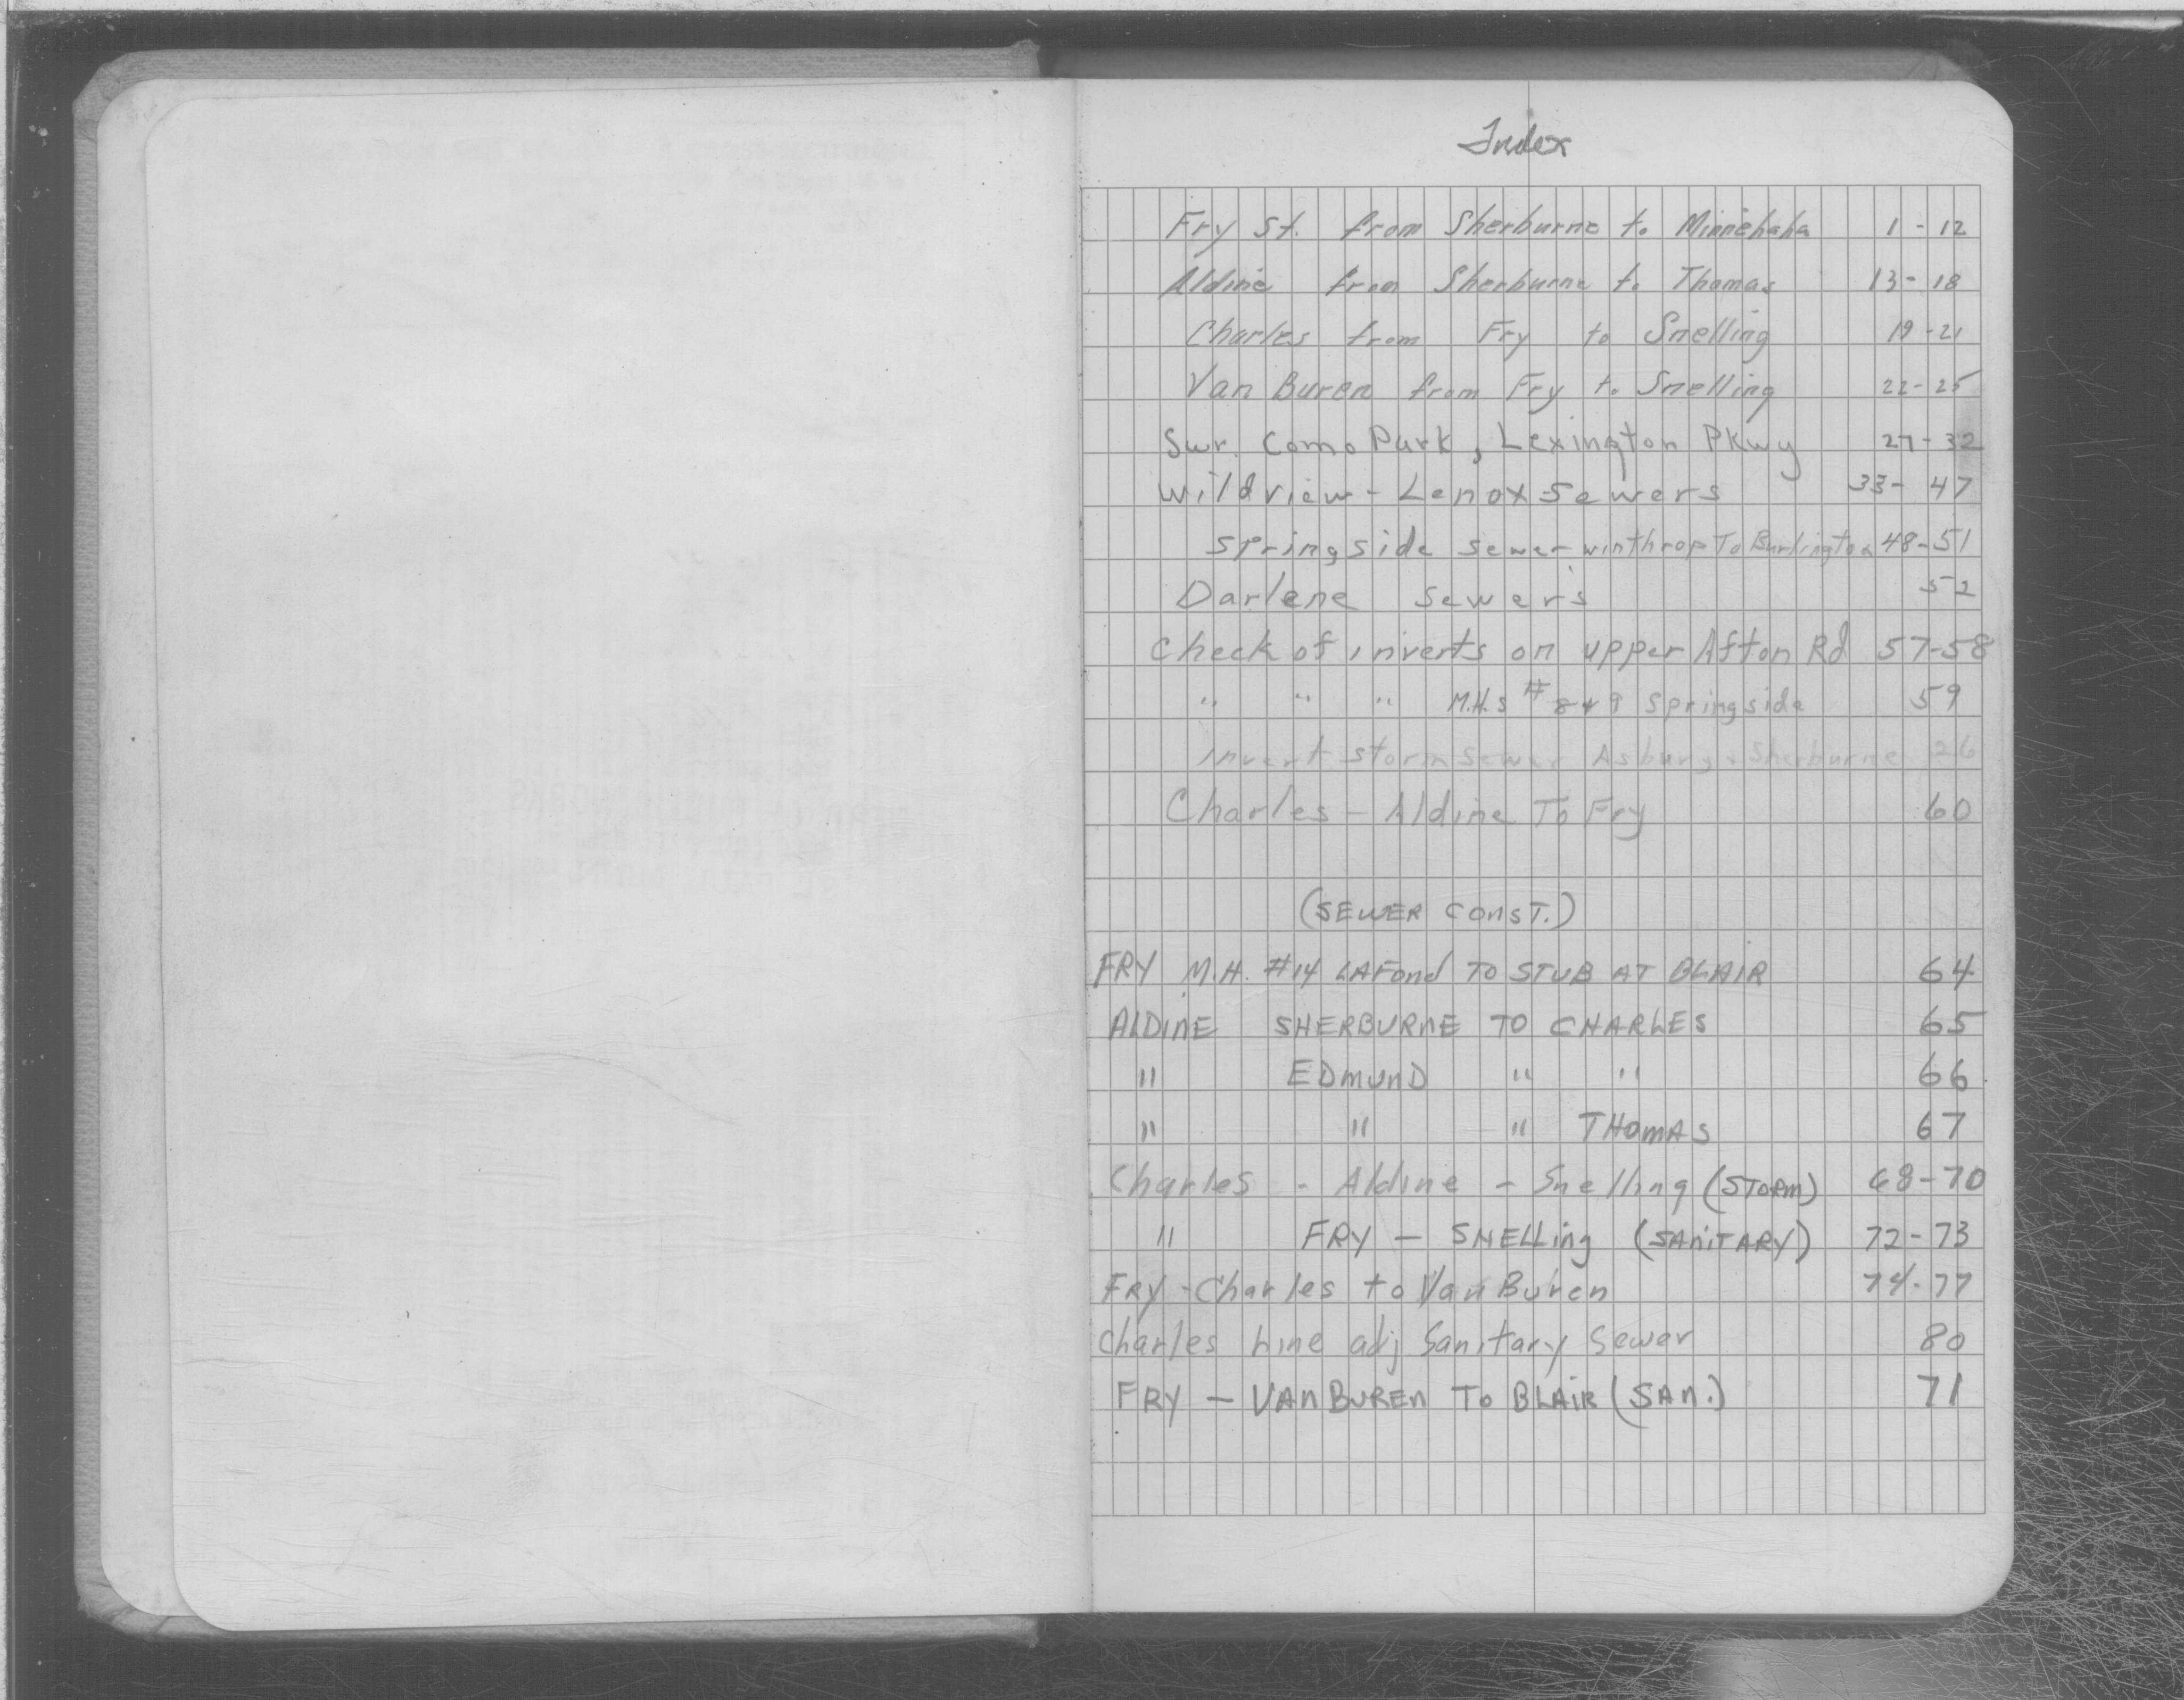 Index
Fry St. from Sherburne to Minnehaha 1-12
Aldine from Sherburne to Thomas 13-18
Charles from Fry to Snelling 19-21
Van Buren from Fry to Snelling 22-25
Swr. Como Park, Lexington Pkwy 27-32
Wildview - Lenox Sewers 33-47
Springside Sewer - Winthrop To Burlington 48-51
Darlene Sewers 52
Check of inverts on upper Afton Rd 57-58
" " " M.H.s # 8 & 9 Springside 59
Invert Storm Sewer Asbury & Sherburne 26
Charles - Aldine To Fry 60
(SEWER CONST.)
FRY M.H. #14 LAFond TO STUB AT BLAIR 64
AlDinE SHERBURnE TO CHARLES 65
" EDmunD " " 66
" " " THomAS 67
Charles - Aldine - Snelling (STORM) 68-70
" FRY - SNELLing (SAniTARY) 72-73
FRY - Charles to Van Buren 74-77
Charles Line adj Sanitary Sewer 80
FRY - VAn BUREn To BLAIR (SAn.) 71